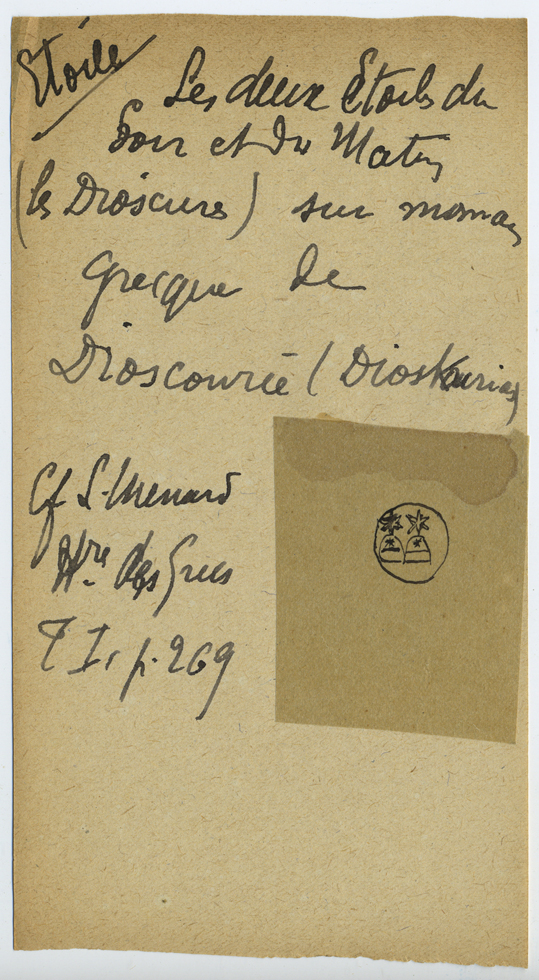 Etoile
Les deux Etoiles du
Soir et du Matin
(les Dioscures) sur monnaie
Grecque de
Dioscourie (Dioskurias)
Cf L. Menard
Hre des Grecs
T I, p. 269